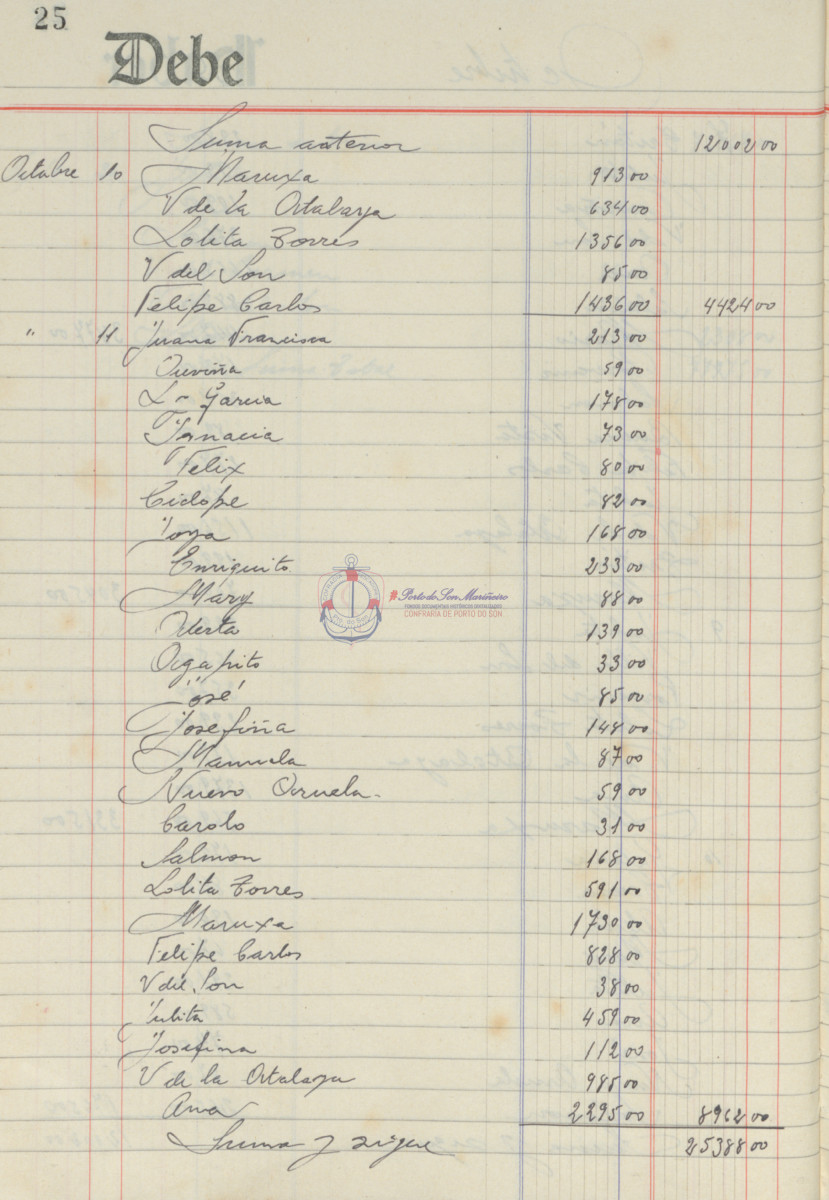 25
Debe
Suma anterior 12002 00
Octubre 10 Maruxa 913 00
V de la Atalaya 634 00
Lolita Torres 1356 00
V del Son 85 00
Felipe Carlos 1436 00 4424 00
" 11 Juana Francisca 213 00
59 00
L - Garcia 178 00
Ignacia 73 00
Felix 80 00
Ciclope 82 00
Joya 168 00
Enriquito 233 00
Mary 88 00
139 00
Agapito 33 00
José 85 00
Josefiña 148 00
Manuela 87 00
Nuevo 59 00
Carolo 31 00
Salmon 168 00
Lolita Torres 591 00
Maruxa 1730 00
Felipe Carlos 828 00
V del Son 38 00
Julita 459 00
Josefina 112 00
V de la Atalaya 985 00
Ana 2295 00 8962 00
Suma y sigue 25388 00
#Porto do Son Mariñeiro
FONDOS DOCUMENTAIS HISTÓRICOS DIXITALIZADOS
CONFRARÍA DE PORTO DO SON